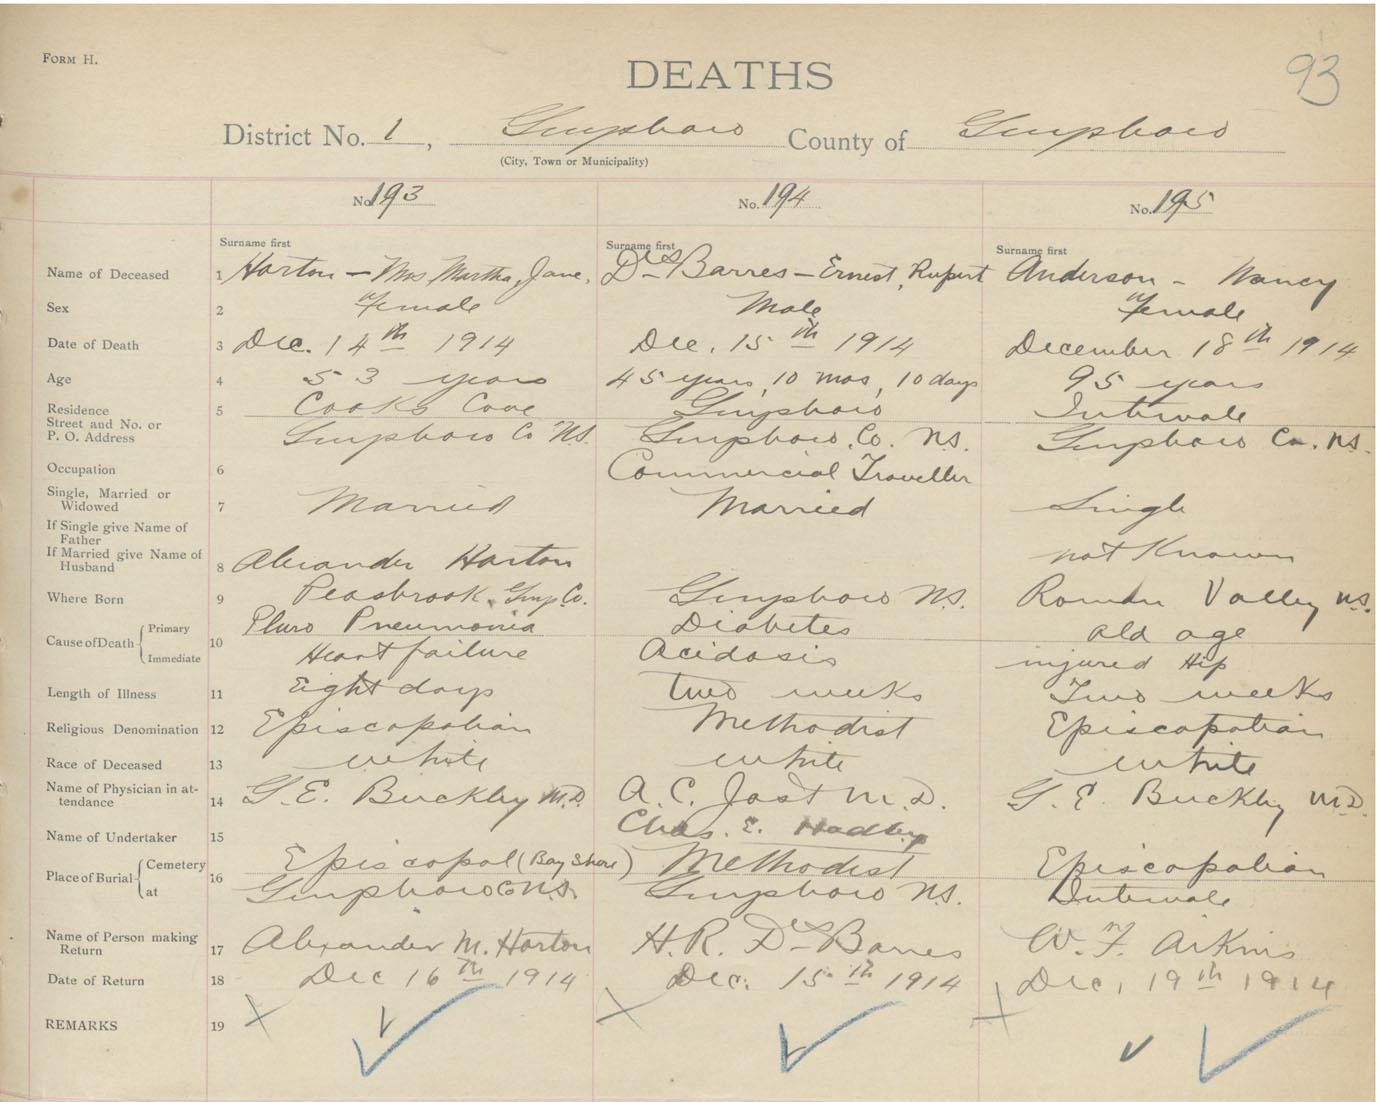 FORM H.
93
DEATHS
District No. 1, Guysboro County of Guysboro
(City, Town or Municipality)
No. 193 No. 194 No. 195
Surname first Surname first Surname first
Name of Deceased 1 Horton — Mrs Martha, Jane, Des Barres — Ernest, Rupert Anderson - Nancy
Sex 2 Female Male Female
Date of Death 3 Dec. 14th 1914 Dec. 15th 1914 December 18th 1914
Age 4 53 years 45 years, 10 mos, 10 days 95 years
Residence 5 Cooks Cove Guysboro Intervale
Street and No. or
P. O. Address Guysboro Co N.S. Guysboro, Co. N.S. Guysboro Co. N.S.
Occupation 6 Commercial Traveller
Single, Married or
Widowed 7 Married Married Single
If Single give Name of
Father
If Married give Name of
Husband 8 Alexander Horton not Known
Where Born 9 Peasbrook, Guys. Co. Guysboro N.S. Roman Valley N.S.
Cause of Death Primary 10 Pluro Pneumonia Diabetes old age
Immediate Heart failure Acidosis injured Hip
Length of Illness 11 Eight days two weeks Two weeks
Religious Denomination 12 Episcopalian Methodist Episcopalian
Race of Deceased 13 white white white
Name of Physician in at-
tendance 14 G. E. Buckley M.D. A. C. Jost M.D. G. E. Buckley M.D.
Name of Undertaker 15 Chas. E. Hadley
Place of Burial Cemetery 16 Episcopal (Bay Shore) Methodist Episcopalian
at Guysboro Co N.S. Guysboro N.S. Intervale
Name of Person making
Return 17 Alexander M. Horton H. R. Des Barres W. F. Aikins
Date of Return 18 Dec 16th 1914 Dec. 15th 1914 Dec, 19th 1914
REMARKS 19